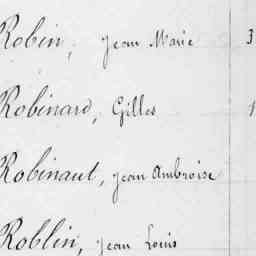 Robin, Jean Marie 3
Robinard, Gilles 1
Robinaut, Jean Ambroise
Roblin, Jean Louis